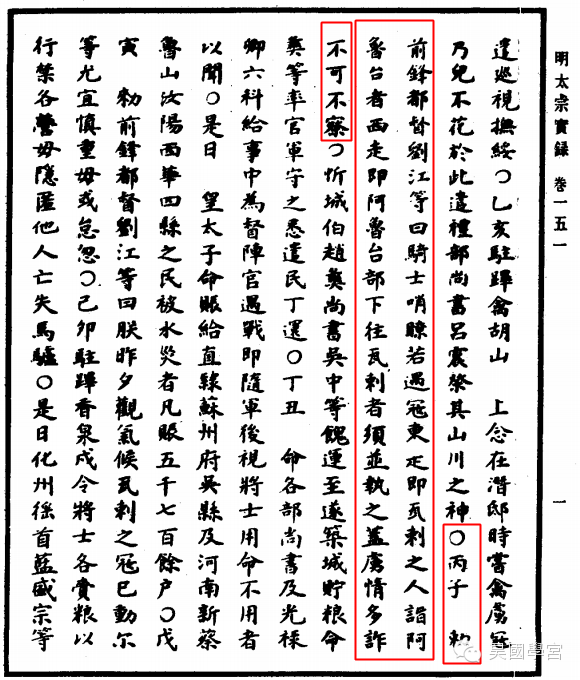 明太宗實録 卷一五一
一
遣巡視撫綏〇乙亥駐蹕禽胡山 上念在潛邸時嘗禽虜冦
乃兒不花於此遣禮部尚書呂震祭其山川之神〇丙子 勑
前鋒都督劉江等曰騎士哨瞭若遇冦東走即瓦剌之人詣阿
魯台者西走即阿魯台部下往瓦剌者須並執之蓋虜情多詐
不可不察〇忻城伯趙彝尚書吳中等餽運至遂築城貯粮命
彝等率官軍守之悉遣民丁還〇丁丑 命各部尚書及光祿
卿六科給事中為督陣官遇戰即隨軍後視將士用命不用者
以聞〇是日 皇太子命賑給直隸蘇州府吳縣及河南新蔡
魯山汝陽西華四縣之民被水災者凡賑五千七百餘户〇戊
寅 勑前鋒都督劉江等曰朕昨夕觀氣候瓦剌之冦已動尔
等尤宜慎重毋或怠忽〇己卯駐蹕香泉戍令將士各賫粮以
行禁各營毋隱匿他人亡失馬驢〇是日化州徭首藍盛宗等
吴國學宮